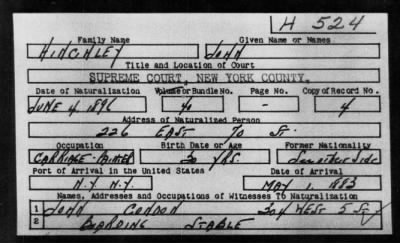 H 524
Family Name Given Name or Names
HINCHLEY JOHN
Title and Location of Court
SUPREME COURT, NEW YORK COUNTY.
Date of Naturalization Volume or Bundle No. Page No. Copy of Record No.
JUNE 4 1896 40 - 4
Address of Naturalized Person
226 EAST 70 St.
Occupation Birth Date or Age Former Nationality
CARRIAGE - PAINTER 30 YRS. See other side
Port of Arrival in the United States Date of Arrival
N.Y. N.Y. MAY 1, 1883
Names, Addresses and Occupations of Witnesses To Naturalization
1 JOHN CONDON 304 WEST 5 St
2 BOARDING STABLE